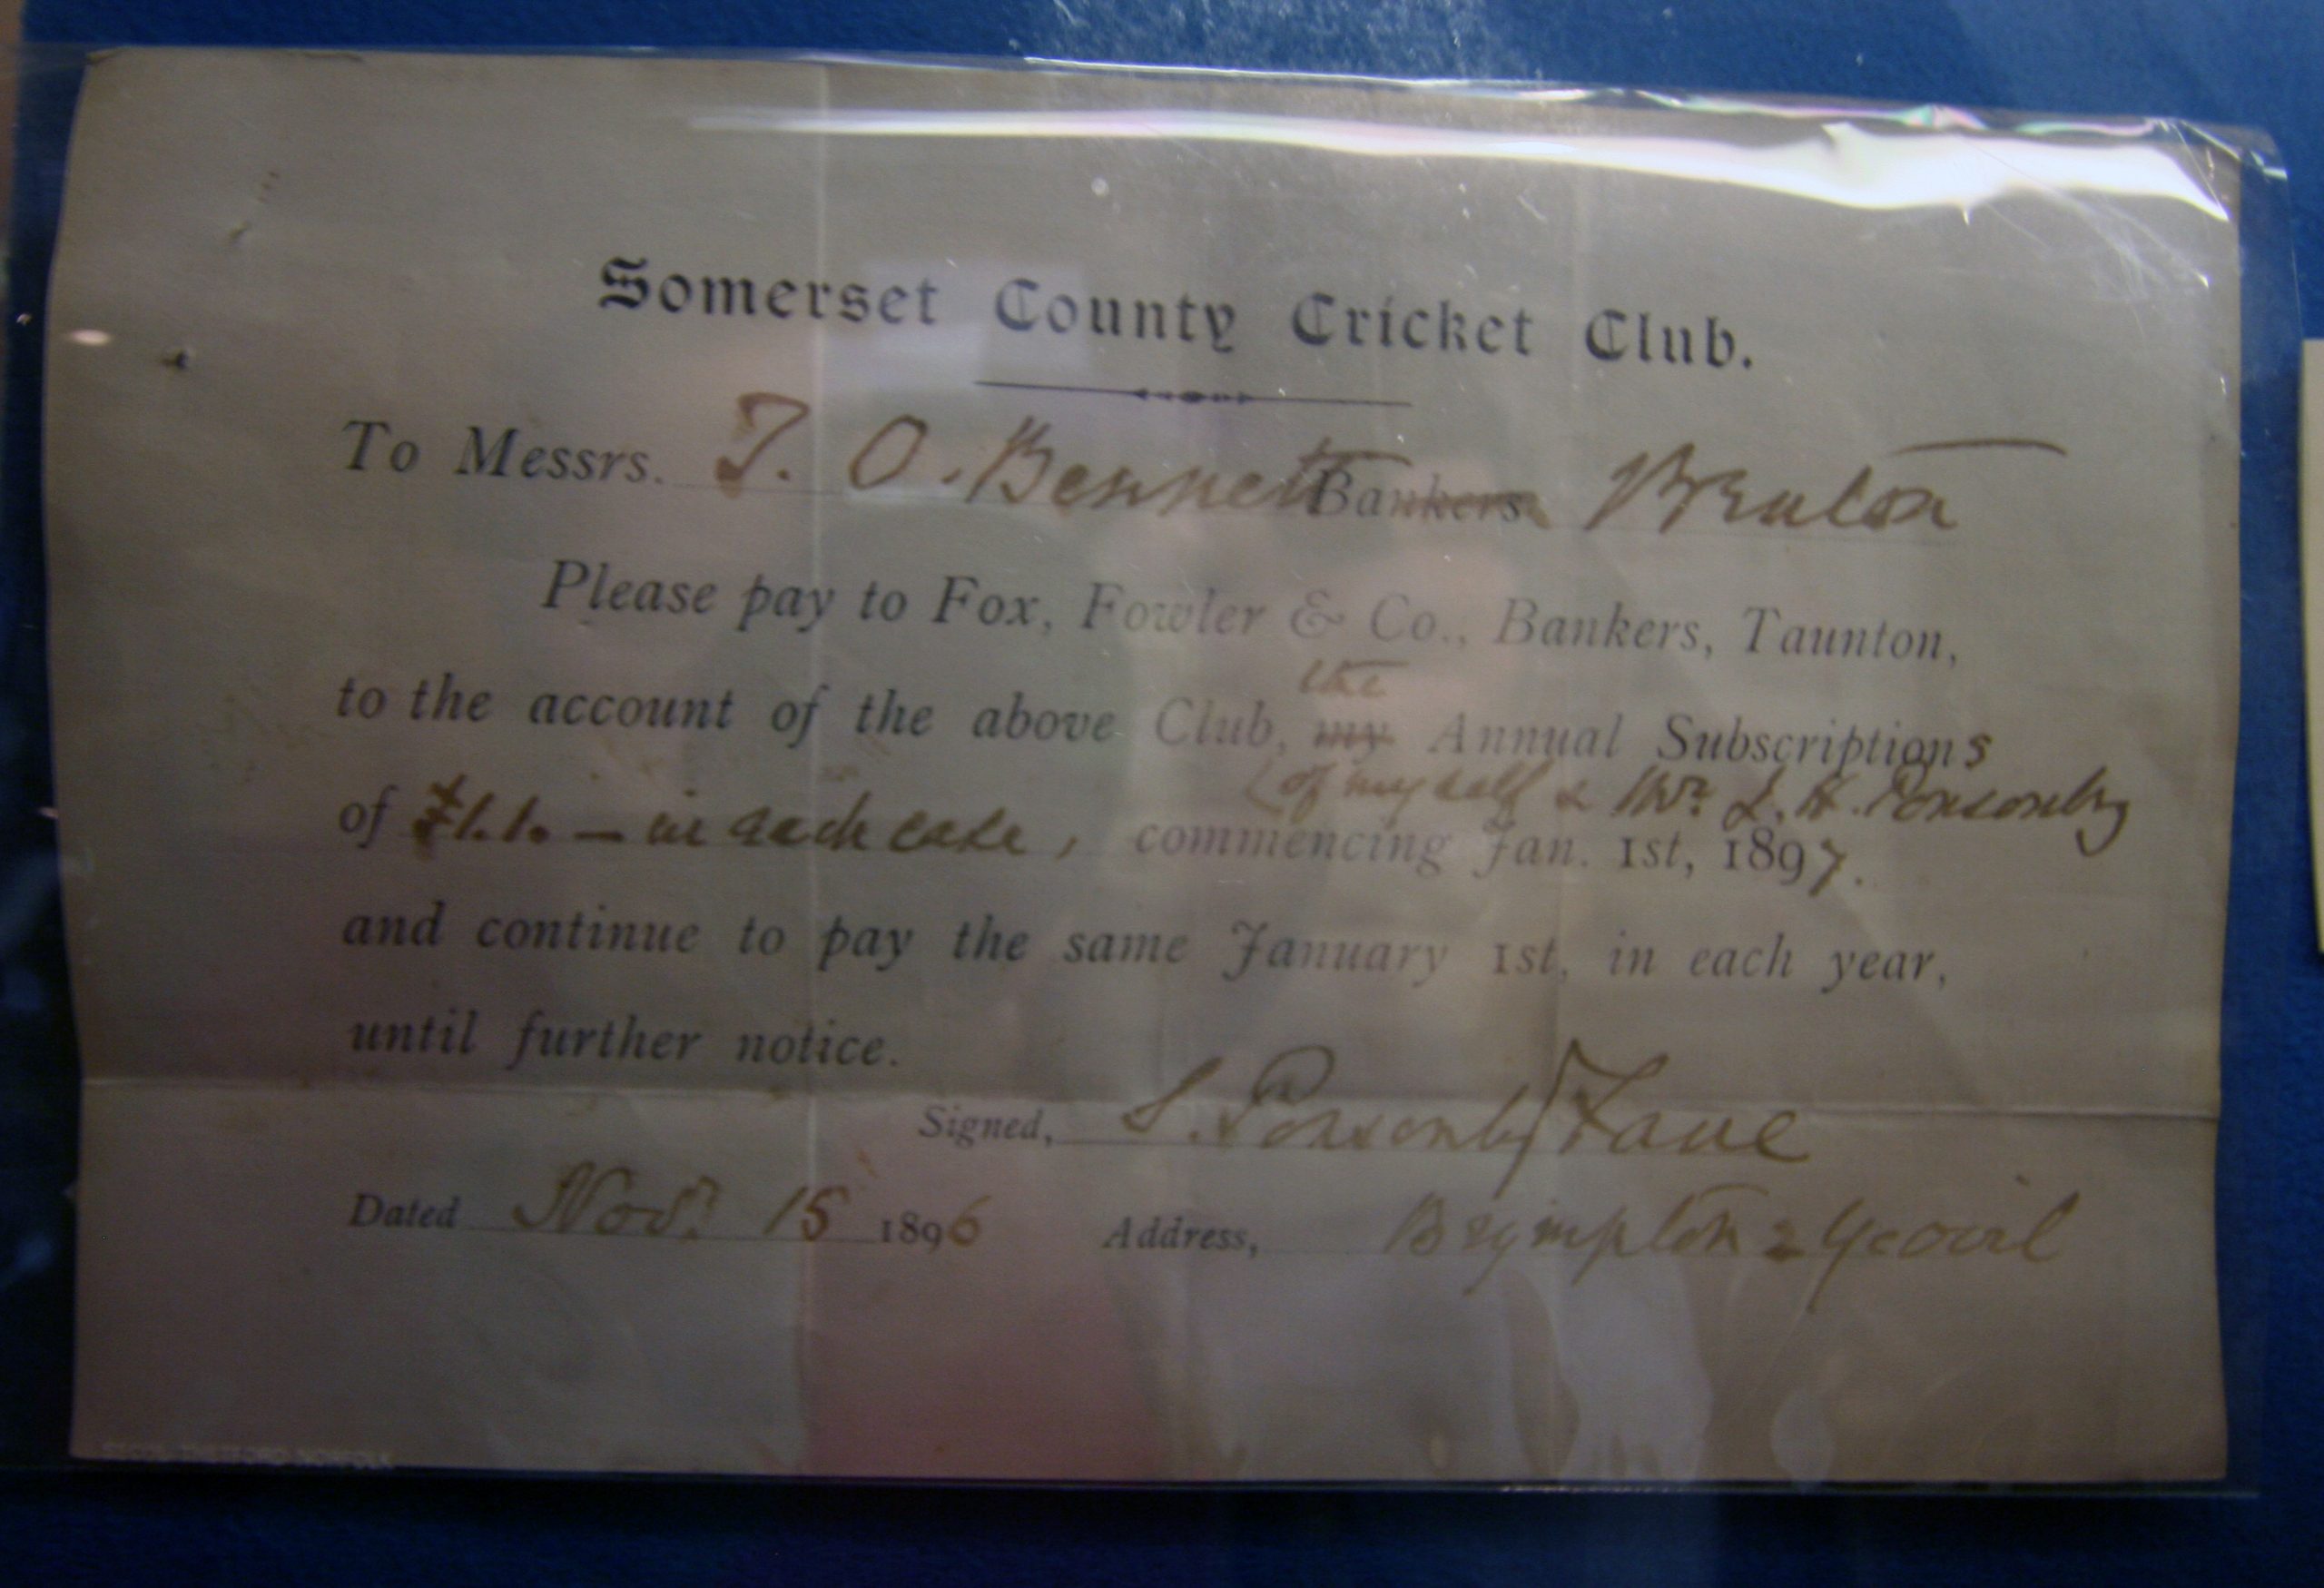 Somerset County Cricket Club.
To Messrs. T. O. Bennett Bankers Bruton
Please pay to Fox, Fowler & Co., Bankers, Taunton,
the
to the account of the above Club, my Annual Subscriptions
(of myself & Mr. L. H. Ponsonby
of £1.1. — in each case, commencing Jan. 1st, 1897.
and continue to pay the same January 1st, in each year,
until further notice.
Signed, S. Ponsonby Fane
Dated Novr. 15 1896 Address, Brympton Yeovil
THETFORD NORFOLK